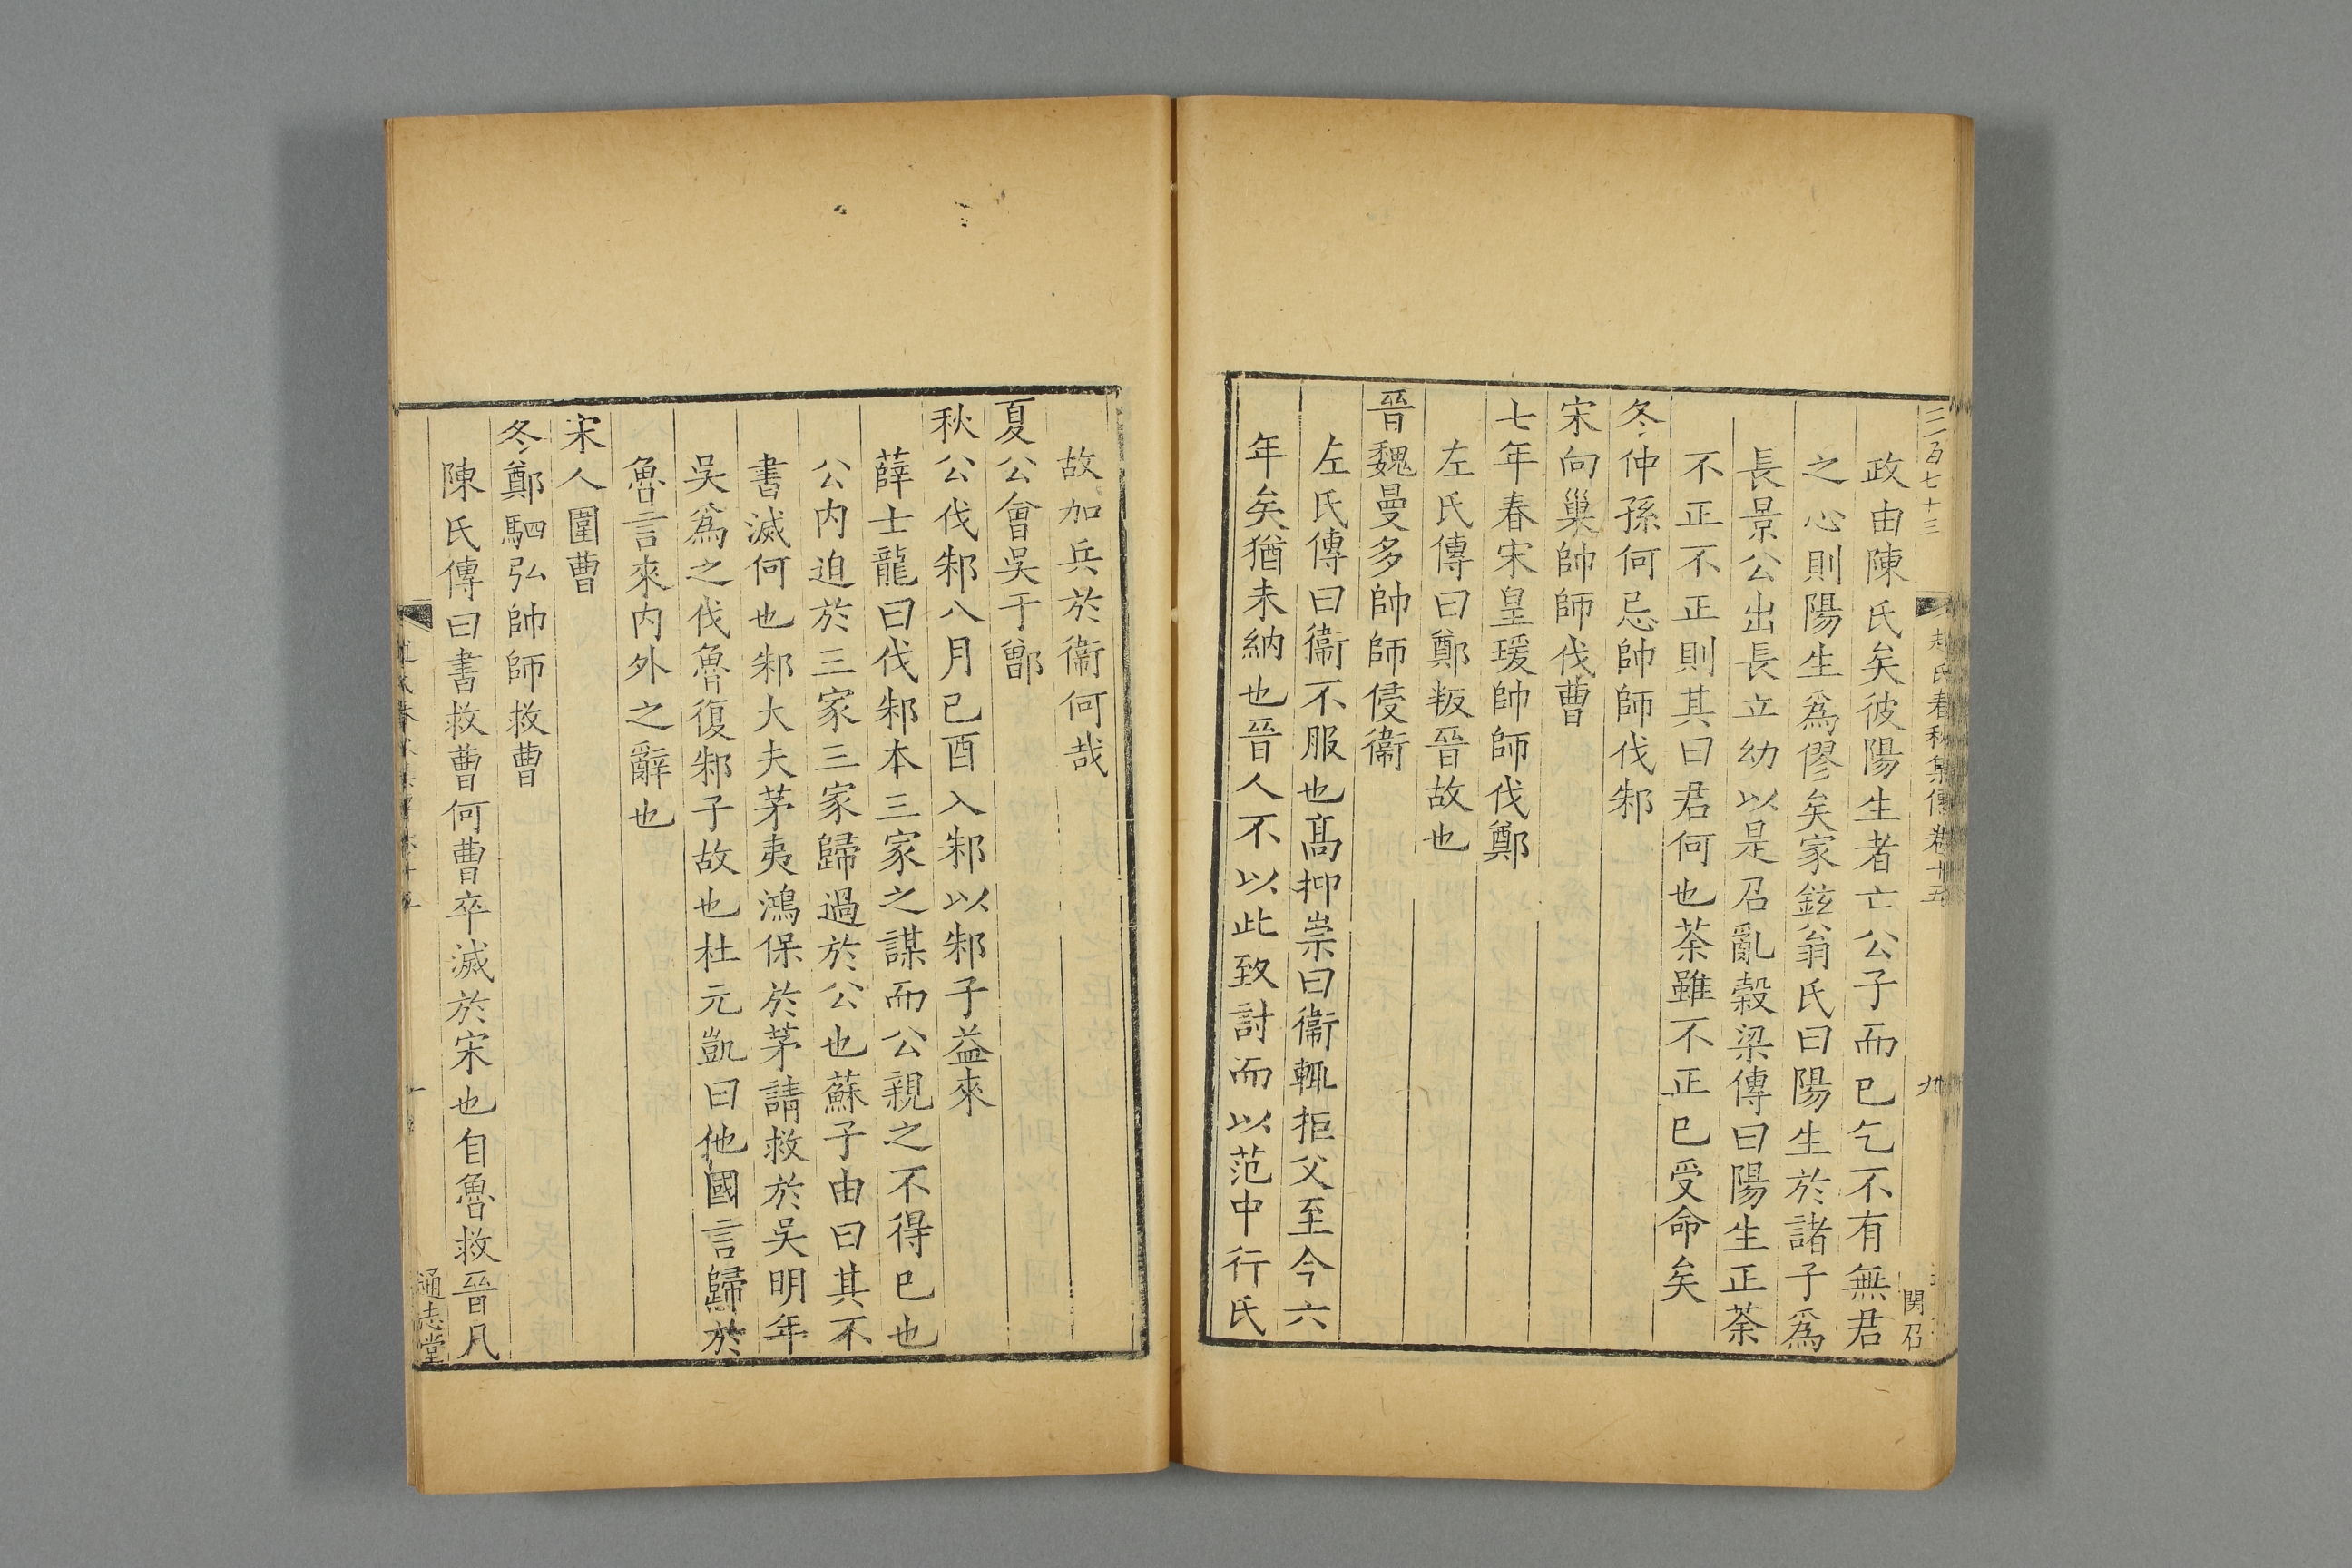 三百七十三 趙氏春秋集傳卷十五 九 関召
政由陳氏矣彼陽生者亡公子而已乞不有無君
之心則陽生爲僇矣家鉉翁氏曰陽生於諸子爲
長景公出長立幼以是召亂榖梁傳曰陽生正荼
不正不正則其曰君何也荼雖不正已受命矣
冬仲孫何忌帥師伐邾
宋向巢帥師伐曹
七年春宋皇瑗帥師伐鄭
左氏傳曰鄭叛晉故也
晉魏曼多帥師侵衞
左氏傳曰衞不服也髙抑崇曰衞輒拒父至今六
年矣猶未納也晉人不以此致討而以范中行氏
故加兵於衞何哉
夏公會吳于鄫
秋公伐邾八月已酉入邾以邾子益來
薛士龍曰伐邾本三家之謀而公親之不得已也
公内迫於三家三家歸過於公也蘇子由曰其不
書滅何也邾大夫茅夷鴻保於茅請救於吳明年
吳爲之伐魯復邾子故也杜元凱曰他國言歸於
魯言來内外之辭也
宋人圍曹
冬鄭駟弘帥師救曹
陳氏傳曰書救曹何曹卒滅於宋也自魯救晉凡
通志堂